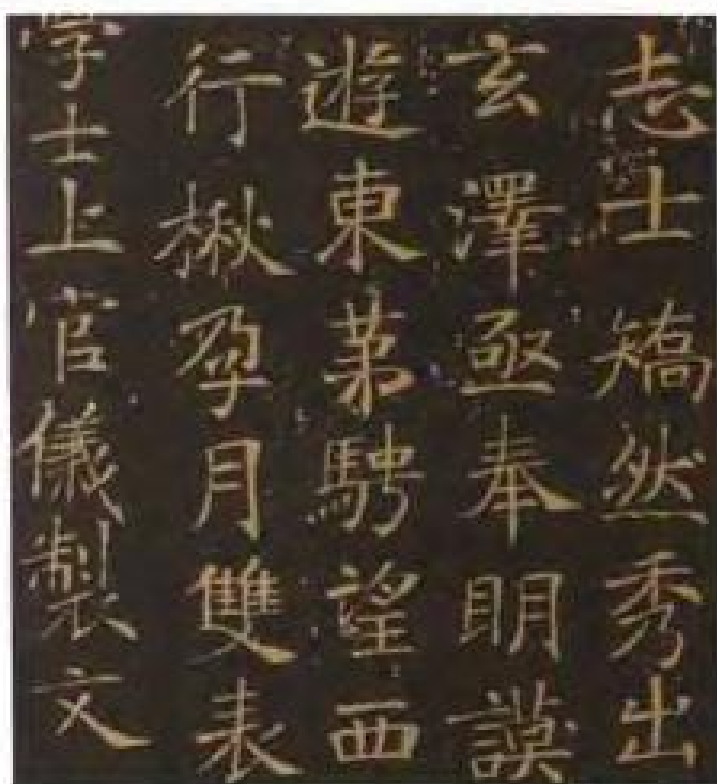 志士矯然秀出
玄澤亟奉明謨
遊東苐騁望西
行楸孕月雙表
學士上官儀製文